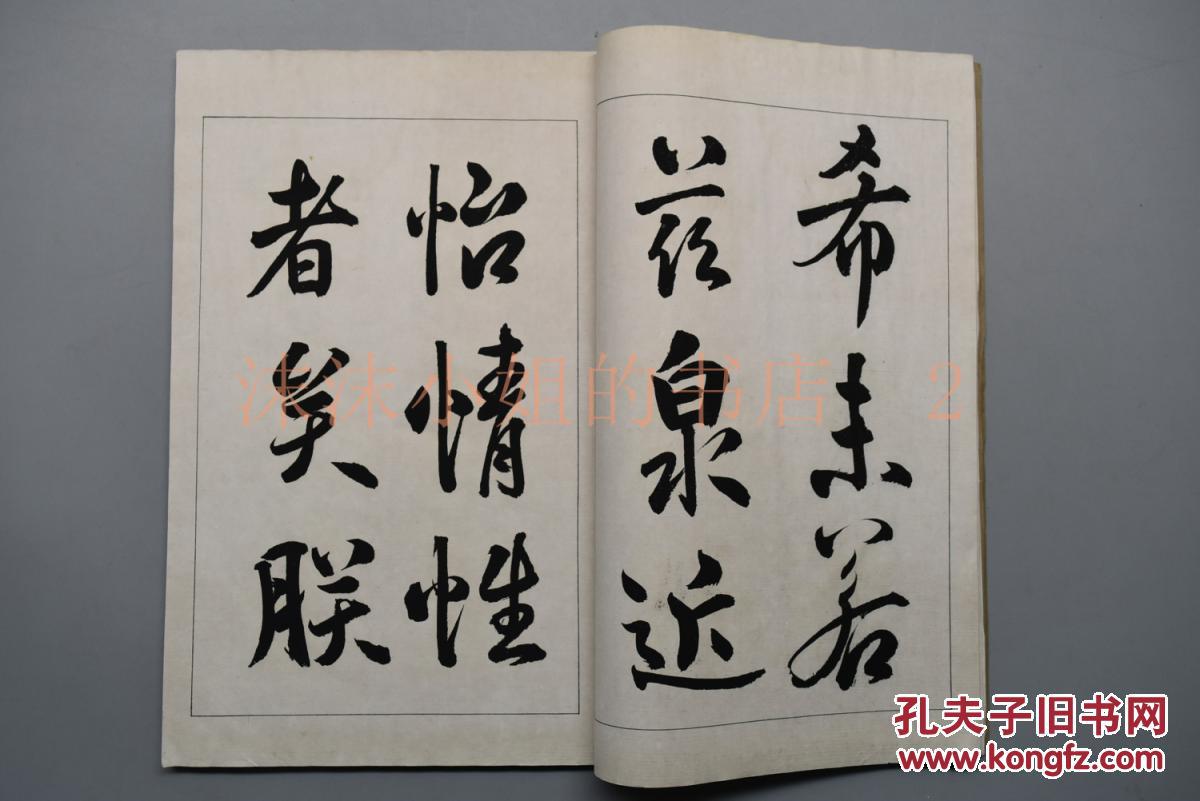 希未若
茲泉近
怡情性
者矣朕
沫沫小姐的书店 2
孔夫子旧书网
www.kongfz.com